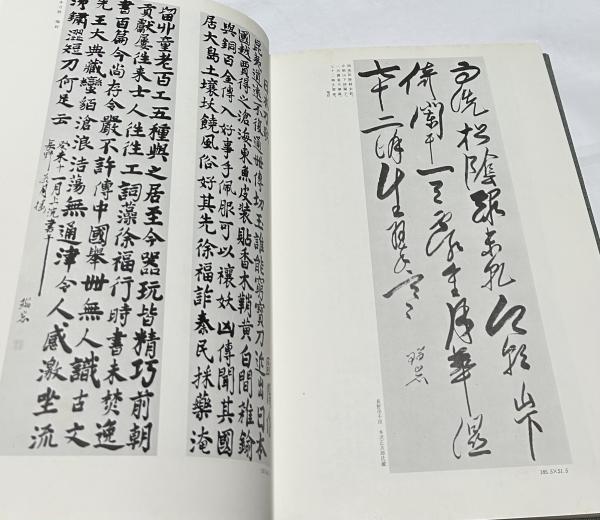 雨洗松陰緑未乾
倚闌干一天露重月華湿
六十二峰生翠寒
日本刀歌
昆夷道遠不復通世傳切玉誰能窮寶刀近出日本
國越賈得之滄海東魚皮裝貼香木鞘黄白間雜鍮
與銅百金傳入好事手佩服可以禳妖凶傳聞其國
居大島土壤沃饒風俗好其先徐福詐秦民採藥淹
留丱童老百工五種與之居至今器玩皆精巧前朝
貢獻屢往來士人往往工詞藻徐福行時書未焚逸
書百篇今尚存令嚴不許傳中國舉世無人識古文
先王大典藏蠻貊滄浪浩蕩無通津令人感激坐流
涕鏽澀短刀何足云
癸未十一月上浣書于